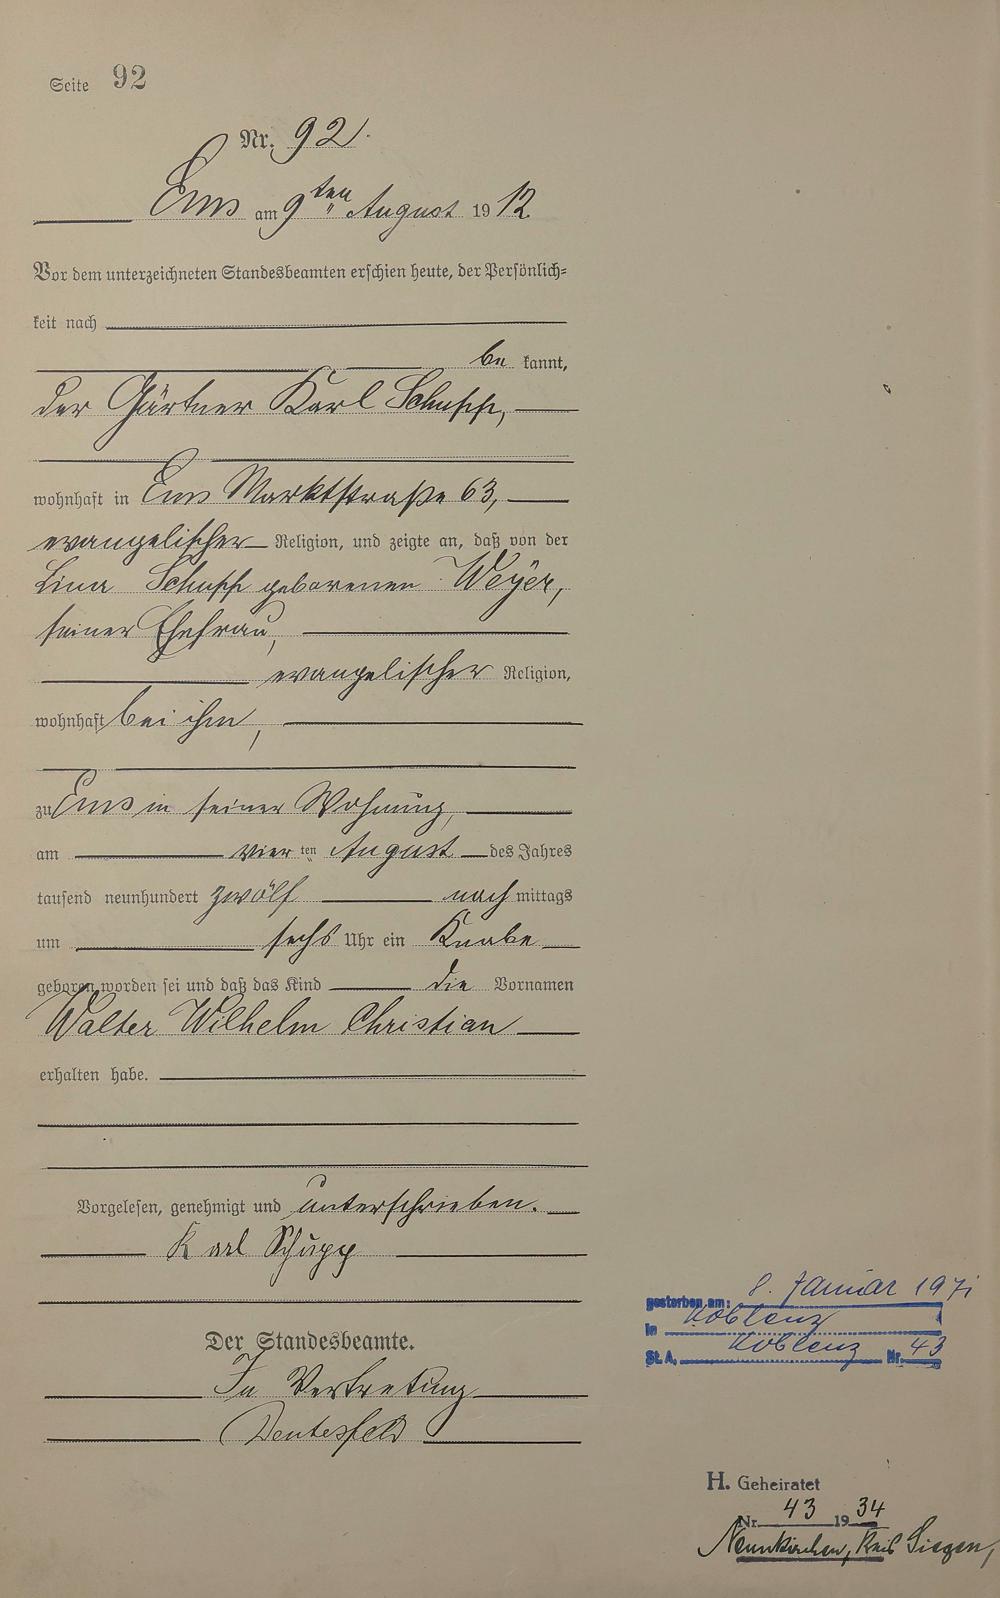 Seite 92
Nr. 92.
Ems am 9ten August 1912
Vor dem unterzeichneten Standesbeamten erschien heute, der Persönlich=
keit nach
be kannt,
der Gärtner Karl Schupp,
wohnhaft in Ems Marktstraße 63,
evangelischer Religion, und zeigte an, daß von der
Lina Schupp geborenen Weyer,
seiner Ehefrau,
evangelischer Religion,
wohnhaft bei ihm,
zu Ems in seiner Wohnung,
am vier ten August des Jahres
tausend neunhundert zwölf nach mittags
um sechs Uhr ein Knabe
geboren worden sei und daß das Kind die Vornamen
Walter Wilhelm Christian
erhalten habe.
Vorgelesen, genehmigt und unterschrieben.
Karl Schupp
Der Standesbeamte.
In Vertretung
gestorben am: 8. Januar 1971
in Koblenz
St. A. Koblenz Nr. 43
H. Geheiratet
Nr. 43 1934
Neunkirchen, Kreis Siegen,